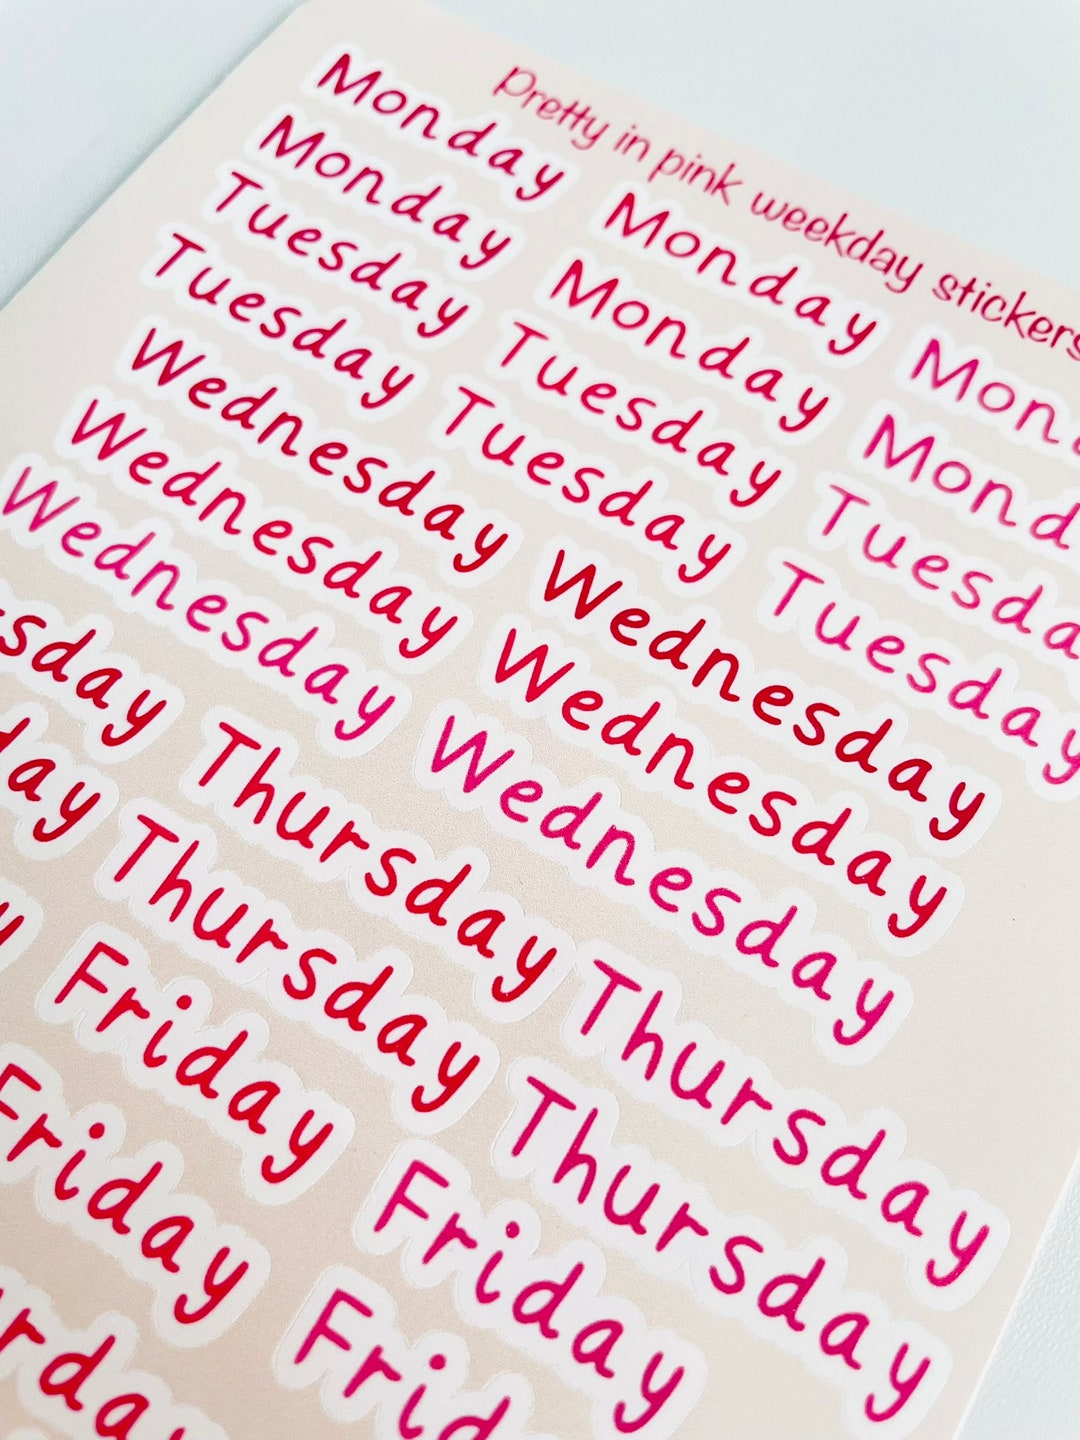 Pretty in pink weekday stickers
Monday Monday Mond
Monday Monday Mond
Tuesday Tuesday Tuesda
Tuesday Tuesday Tuesday
Wednesday Wednesday
Wednesday Wednesday
Wednesday Wednesday
sday Thursday Thursday
day Thursday Thursday
y Friday Friday
Friday Frid
rday